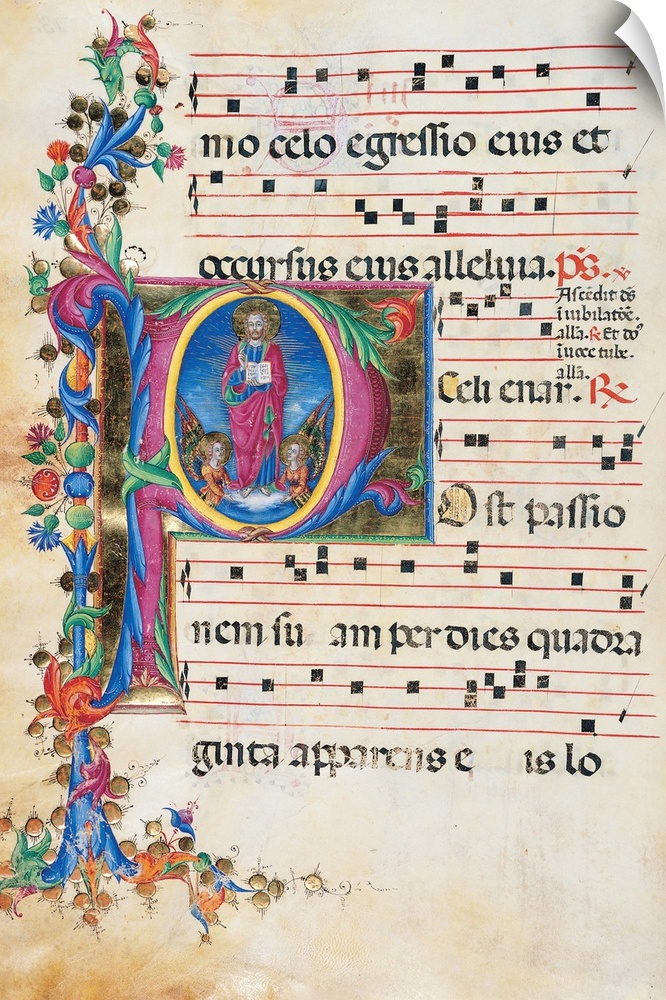 mo celo egressio eius et
occursus eius alleluia. ps. xv
Ascēdit ds̄
i iubilatōe.
alla. R Et dn̄s
i uoce tube.
alla.
Celi enar. R
Post passio
nem su am per dies quadra
ginta apparens e is lo